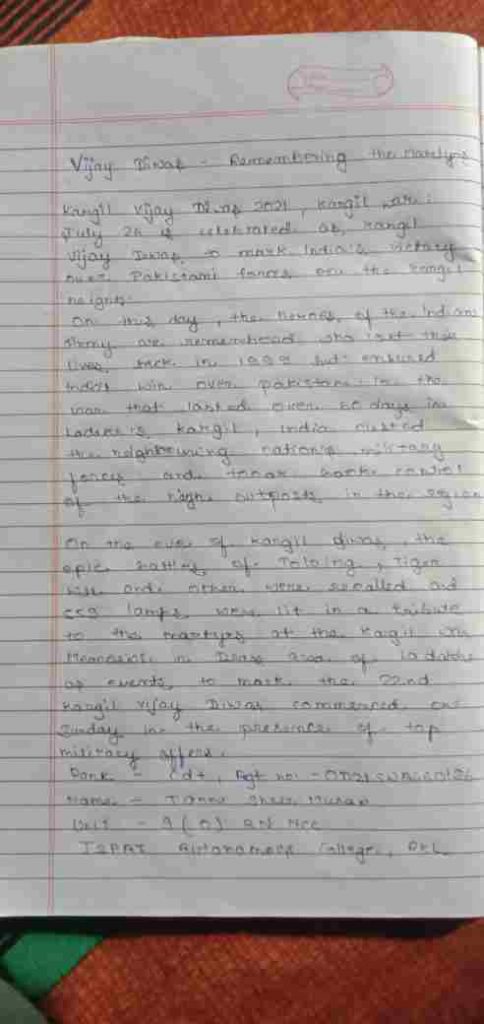 Vijay Diwas - Remembering the Martyrs
Kargil Vijay Diwas 2021, Kargil war:
July 26 is celebrated as, Kargil
Vijay Diwas, to mark India's victory
over Pakistani forces on the Kargil
heights.
On this day, the heroes, of the Indian
Army are remembered who lost their
lives, back in 1999 but ensured
India's win over Pakistan. In the
war that lasted over 60 days in
Ladakh's Kargil, India ousted
the neighbouring nation's military
forces and took back control
of the high outposts in the region
On the eve of Kargil diwas, the
epic battles of Tololing, Tiger
Hill and others were recalled and
559 lamps were lit in a tribute
to the martyrs at the Kargil War
Memorial in Drass area of Ladakh
as events, to mark the 22nd
Kargil Vijay Diwas commenced on
Sunday in the presence of top
military
Rank - Cdt, Rgt no: -
Name -
Unit - 9 (O) BN NCC
ISPAT Autonomous College, RKL